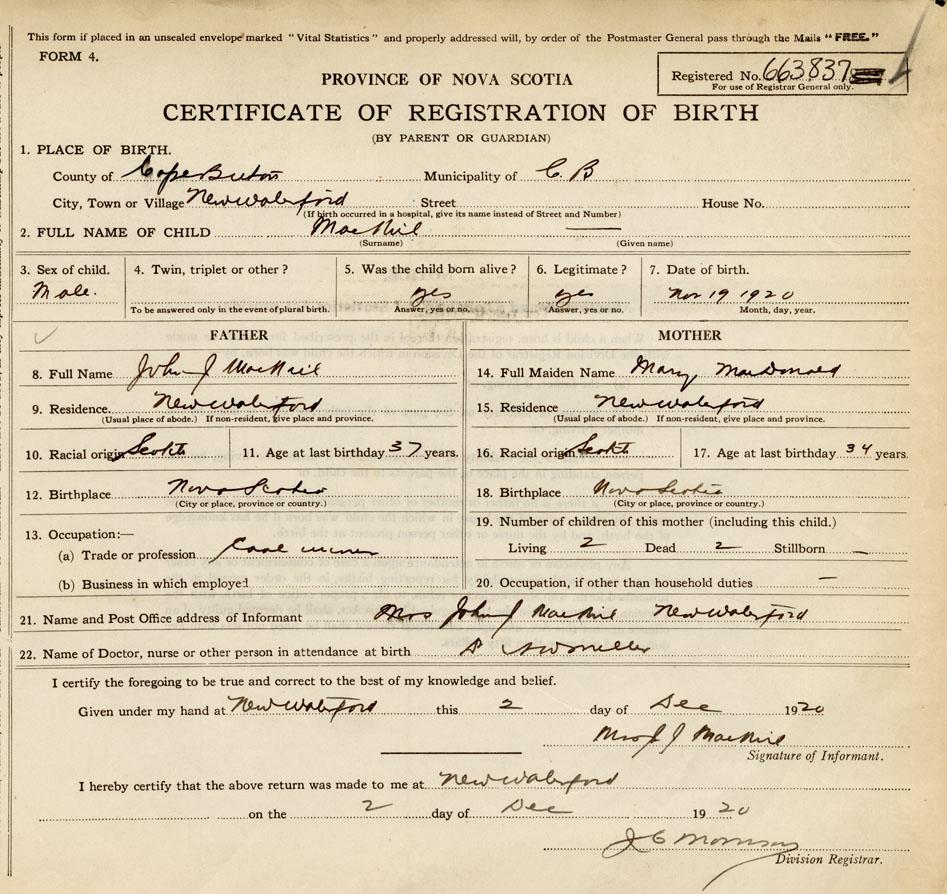 This form if placed in an unsealed envelope marked "Vital Statistics" and properly addressed will, by order of the Postmaster General pass through the Mails "FREE."
FORM 4.
Registered No. 663837
For use of Registrar General only.
PROVINCE OF NOVA SCOTIA
CERTIFICATE OF REGISTRATION OF BIRTH
(BY PARENT OR GUARDIAN)
1. PLACE OF BIRTH.
County of Cape Breton Municipality of C. B
City, Town or Village New Waterford Street House No.
(If birth occurred in a hospital, give its name instead of Street and Number)
2. FULL NAME OF CHILD MacNeil —
(Surname) (Given name)
3. Sex of child. 4. Twin, triplet or other? 5. Was the child born alive? 6. Legitimate? 7. Date of birth.
Male. yes yes Nov 19 1920
To be answered only in the event of plural birth. Answer, yes or no. Answer, yes or no. Month, day, year.
FATHER MOTHER
8. Full Name John J MacNeil 14. Full Maiden Name Mary MacDonald
9. Residence. New Waterford 15. Residence New Waterford
(Usual place of abode.) If non-resident, give place and province. (Usual place of abode.) If non-resident, give place and province.
10. Racial origin Scotch 11. Age at last birthday 37 years. 16. Racial origin Scotch 17. Age at last birthday 34 years.
12. Birthplace Nova Scotia 18. Birthplace Nova Scotia
(City or place, province or country.) (City or place, province or country.)
13. Occupation:— 19. Number of children of this mother (including this child.)
(a) Trade or profession Coal miner Living 2 Dead 2 Stillborn —
(b) Business in which employed 20. Occupation, if other than household duties —
21. Name and Post Office address of Informant Mrs John J MacNeil New Waterford
22. Name of Doctor, nurse or other person in attendance at birth Miller
I certify the foregoing to be true and correct to the best of my knowledge and belief.
Given under my hand at New Waterford this 2 day of Dec 1920
Mrs J J MacNeil
Signature of Informant.
I hereby certify that the above return was made to me at New Waterford
on the 2 day of Dec 1920
J C Morrison
Division Registrar.